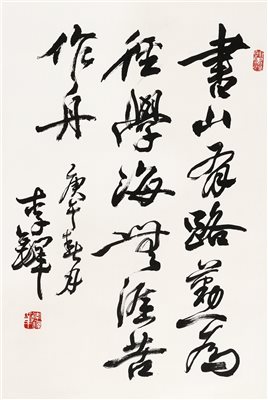 書山有路勤為
徑學海無涯苦
作舟
庚午月
李鐸